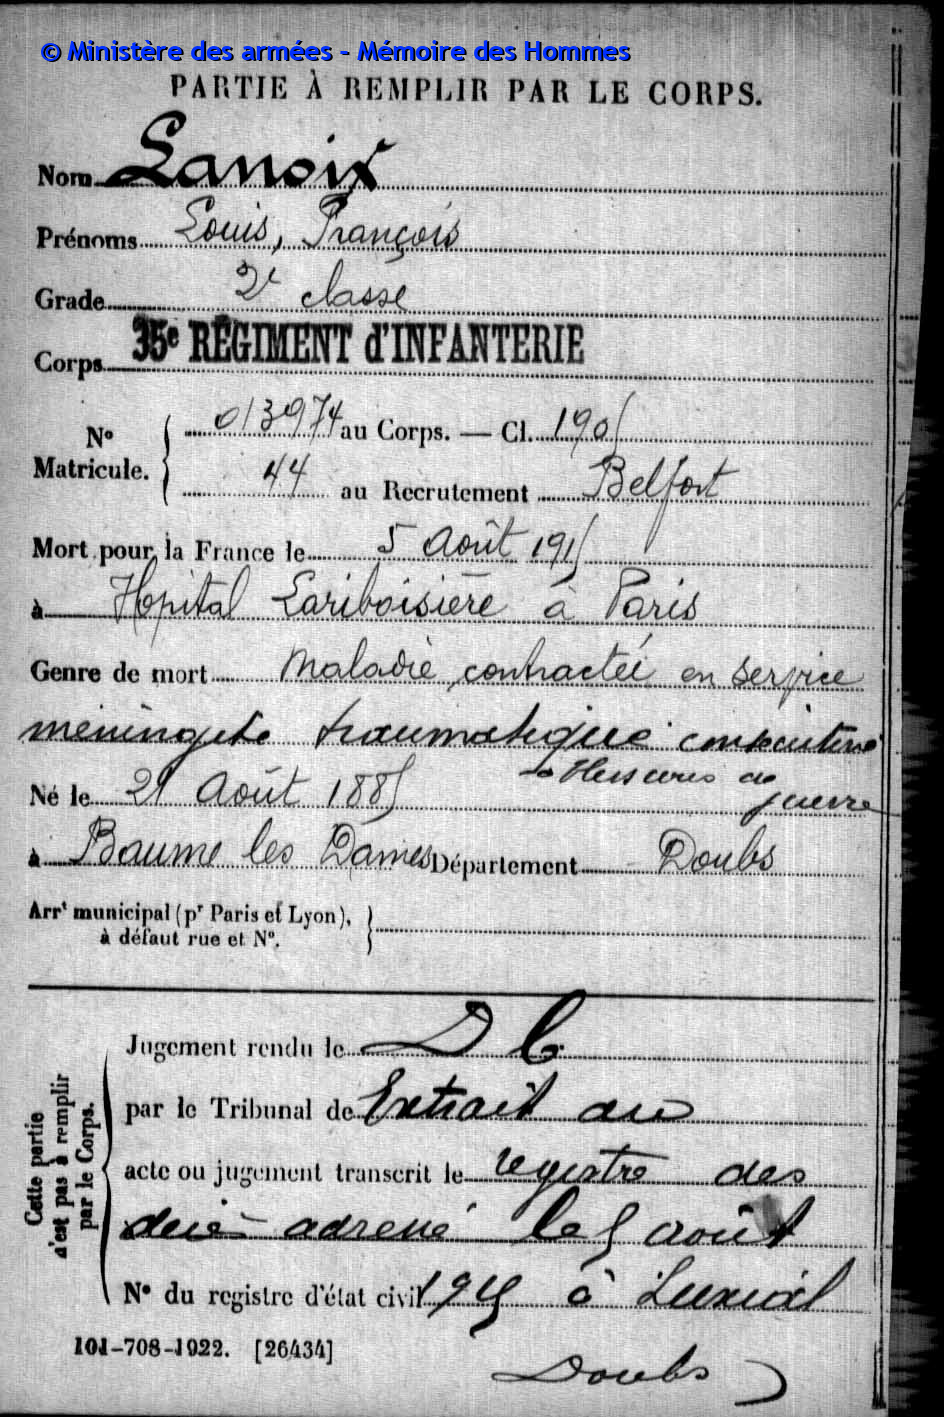 © Ministère des armées - Mémoire des Hommes
PARTIE À REMPLIR PAR LE CORPS.
Nom Lanoix
Prénoms Louis, François
Grade 2e classe
Corps 35e RÉGIMENT d'INFANTERIE
N° Matricule. 013974 au Corps. — Cl. 1905
44 au Recrutement Belfort
Mort pour la France le 5 Août 1915
à Hopital Lariboisière à Paris
Genre de mort Maladie contractée en service
méningite traumatique consécutive
à blessures de
guerre
Né le 21 Août 1885
à Baume les Dames Département Doubs
Arrt municipal (pr Paris et Lyon),
à défaut rue et N°.
Cette partie
n'est pas à remplir
par le Corps.
Jugement rendu le D C
par le Tribunal de Extrait du
acte ou jugement transcrit le registre des
décès adressé le 5 août
N° du registre d'état civil 1915 à
Doubs
101-708-1922. [26434]